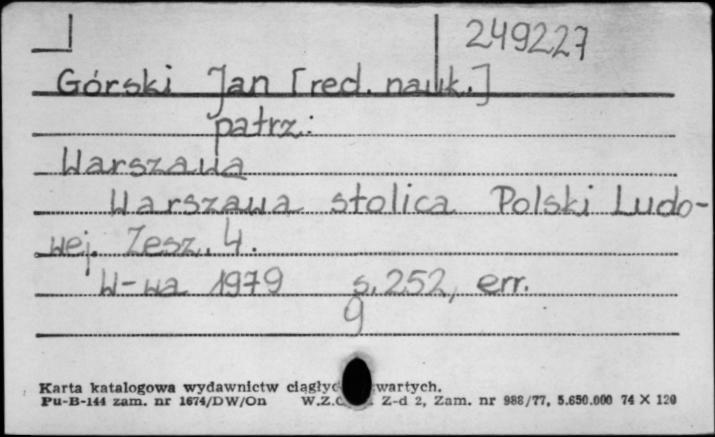 249227
Górski Jan [red. nauk.]
patrz:
Warszawa
Warszawa stolica Polski Ludo-
wej. Zesz. 4.
W-wa 1979 s. 252, err.
9
Karta katalogowa wydawnictw
Pu-B-144 zam. nr 1674/DW/On Z-d 2, Zam. nr 988/77, 5.650.000 74 X 120